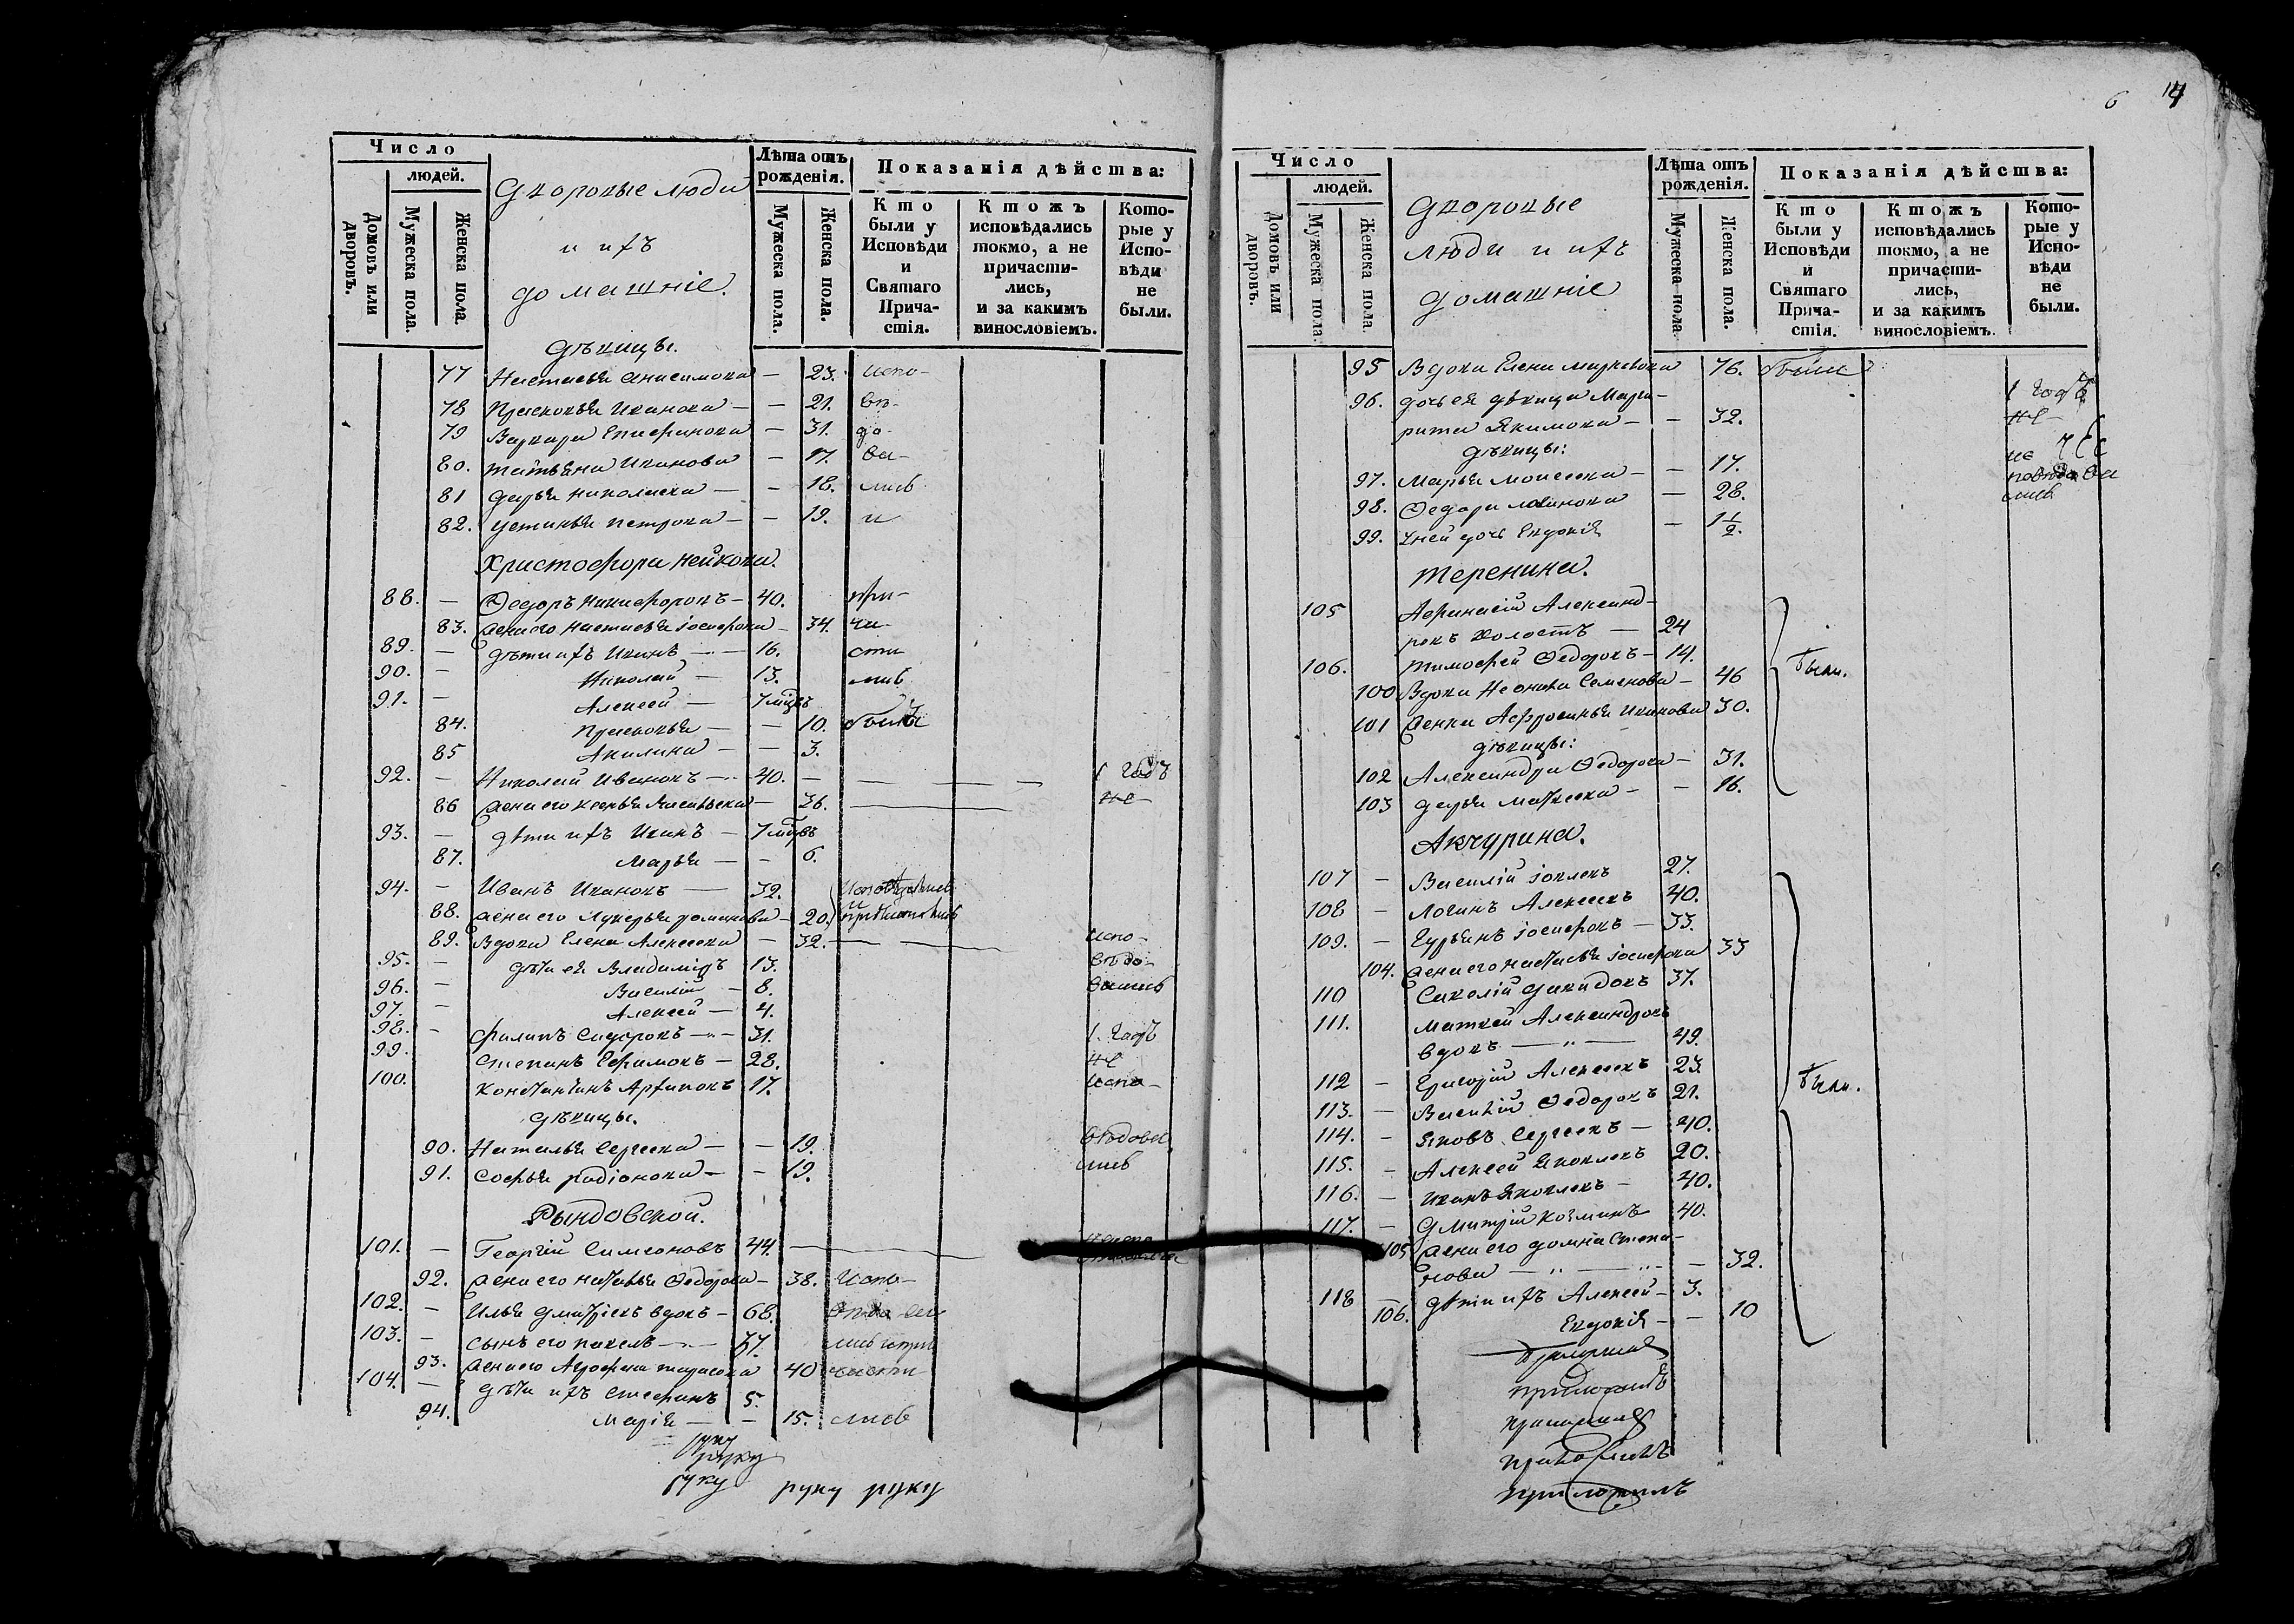 Число
людей.
Домовъ или дворовъ.
Мужеска пола.
Женска пола.
Дворовые люди
и ихъ
домашніе.
Лѣта отъ рожденія.
Мужеска пола.
Женска пола.
Показанія дѣйства:
Кто были у Исповѣди и Святаго Прича-стія.
Ктожъ исповѣдались токмо, а не причасти-лись, и за какимъ винословіемъ.
Кото-рые у Испо-вѣди не были.
Дѣвицы.
77 Настасья Анисимова — 23. испо-
78 Прасковья Иванова — — 21. вѣ-
79 Варвара Епифанова — 31. до-
80. Татьяна Иванова — 17. ва-
81 Дарья Николаева — — 18. лись
82. Устинья Петрова — — 19. и
Христофора Нейкова.
88. — Ѳедоръ Никифоровъ — 40. при-
83. Жена его Настасья Іосифова — 34. ча-
89. — Дѣти ихъ Иванъ — 16. сти
90. — Николай — 13. лись
91. — Алексей — 7 мцвъ
84. Прасковья — — 10. были
85 Акилина — — 3.
92. — Николай Ивановъ — 40. — 1 годъ
86 Жена его Васильева — 36. не-
93. — Дѣти ихъ Иванъ — 7 мцвъ
87. Марья — — 6.
94. — Иванъ Ивановъ — 32. Исповѣдались
и
88. Жена его Лукерья Романова — 20. причастились
89. Вдова Елена Алексеева — 32. — испо-
95. — Дѣти ея Владимиръ 13. вѣдо-
96. — Василій — 8. вались
97. — Алексей — 4.
98. — Филипъ Сидоровъ — 31. 1. годъ
99. Степанъ Ефимовъ — 28. не
100. Константинъ Архиповъ 17. испо-
Дѣвицы.
90. Наталья Сергеева — — 19. вѣдова
91. Софья Радіонова — — 19. лись
Рындовской.
101. — Георгій Симеоновъ 44. —
92. Жена его Наталья Ѳедорова — 38. Испо-
102. — Илья Дмитріевъ вдовъ — 68.
103. — Сынъ его Павелъ — 37.
93. Жена его Тарасова 40
104. — Дѣти ихъ Стефанъ 5.
94. Марія — — 15. лись
руку
руку
руку руку руку
6 14
Число
людей.
Домовъ или дворовъ.
Мужеска пола
Женска пола
Дворовые
люди и ихъ
домашніе
Лѣта отъ рожденія.
Мужеска пола
Женска пола.
Показанія дѣйства:
Кто были у Исповѣди и Святаго Прича-стія.
Ктожъ исповѣдались токмо, а не причасти-лись, и за какимъ винословіемъ.
Кото-рые у Испо-вѣди не были.
95 Вдова Елена Маркевова 76. были
1 годъ
96. дочь ея девица Марга-
не-
рита Якимова — — 32.
дѣвицы:
97. Марья Моисеева — — 17.
98. Ѳедора Логинова — 28. лись
99. у ней дочь Евдокія — 1 1/2.
Теренина.
105 Афанасій Александ-
ровъ холостъ — 24
106. Тимофей Ѳедоровъ — 14. Были.
100 Вдова Неонила Семенова — 46
101 Женка Афросинья Иванова 30.
дѣвицы:
102 Александра Ѳедорова — 31.
103 Дарья Матвеева — — 16.
Акчурина.
107 — Василій Іовлевъ 27.
108 — Логинъ Алексеевъ 40.
109. — Гурьянъ Іосифовъ — 33.
104. Жена его Настасья Іосифова 33
110 Савелій Давидовъ 37.
111. Матвей Александровъ
вдовъ — „ — 49.
112 — Григорій Алексеевъ 23. Были.
113. — Василій Ѳедоровъ 21.
114. — Яковъ Сергеевъ — 40.
115. — Алексей Яковлевъ 20.
116. — Иванъ Яковлевъ — 40.
117. — Дмитрій Козминъ 40.
105 Жена его Домна Степа-
нова — „ — „ — — 32.
118 — Дѣти ихъ Алексей — 3.
106. Евдокія — — 10
приложилъ
приложилъ